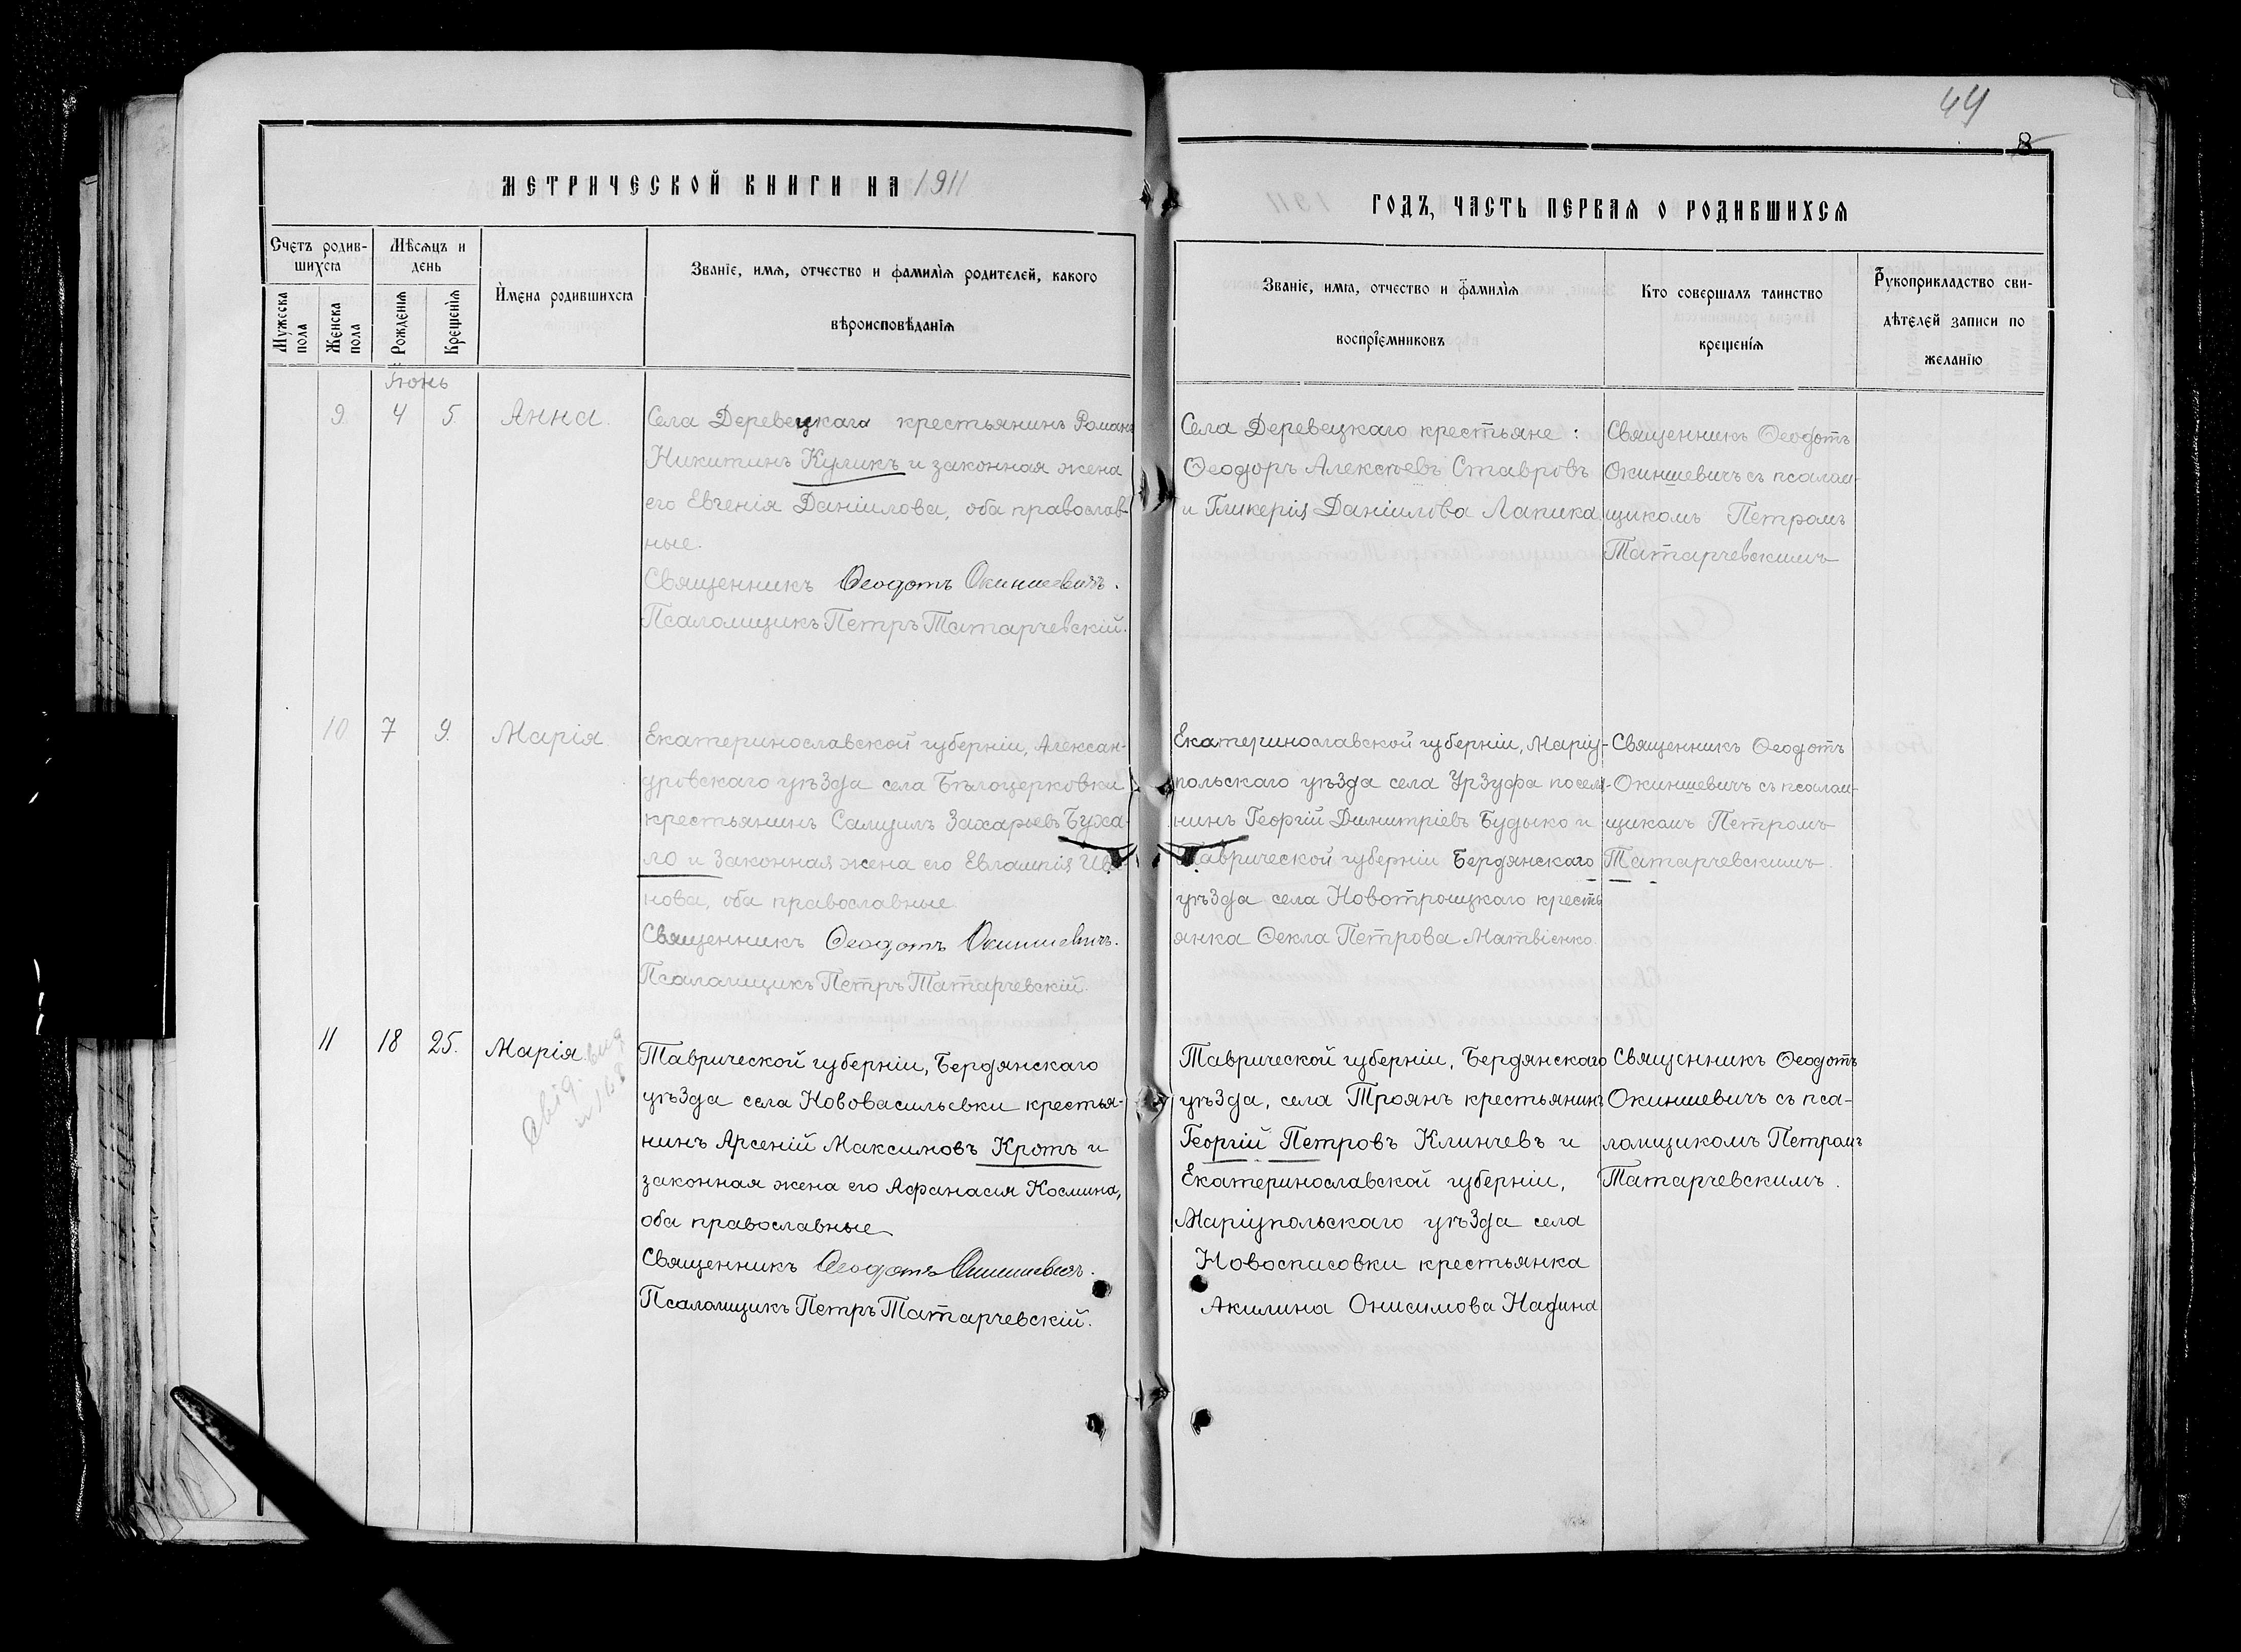 44
8
МЕТРИЧЕСКОЙ КНИГИ НА 1911
ГОДЪ, ЧАСТЬ ПЕРВАЯ О РОДИВШИХСЯ
Счетъ родив-
шихся
Мужеска
пола
Женска
пола
Мѣсяцъ и
день
Рожденія
Крещенія
Имена родившихся
Званіе, имя, отчество и фамилія родителей, какого
вѣроисповѣданія
Званіе, имя, отчество и фамилія
воспріемниковъ
Кто совершалъ таинство
крещенія
Рукоприкладство сви-
дѣтелей записи по
желанію
Іюнь
9 4 5. Анна.
Села Деревецкаго крестьянинъ Романъ
Никитинъ Куликъ и законная жена
его Евгенія Даніилова, оба православ-
ные.
Священникъ Ѳеодотъ Окиншевичъ.
Псаломщикъ Петръ Татарчевскій.
Села Деревецкаго крестьяне:
Ѳеодоръ Алексѣевъ Ставровъ
и Гликерія Даніилова Лапика
Священникъ Ѳеодотъ
Окиншевичъ съ псалом-
щикомъ Петромъ
Татарчевскимъ
10 7 9. Марія
Екатеринославской губерніи, Алексан-
дровскаго уѣзда села Бѣлоцерковки
крестьянинъ Самуилъ Захарьевъ Буха-
ло и законная жена его Евлампія Ива
нова, оба православные
Священникъ Ѳеодотъ Окиншевичъ.
Псаломщикъ Петръ Татарчевскій.
Екатеринославской губерніи, Маріу-
польскаго уѣзда села Урзуфа поселя-
нинъ Георгій Димитріевъ Будыко и
Таврической губерніи Бердянскаго
уѣзда села Новотроицкаго кресть
янка Ѳекла Петрова Матвіенко.
Священникъ Ѳеодотъ
Окиншевичъ съ псалом-
щикомъ Петромъ
Татарчевскимъ.
11 18 25. Марія.
Таврической губерніи, Бердянскаго
уѣзда села Нововасильевки крестья-
нинъ Арсеній Максимовъ Кротъ и
законная жена его Аѳанасія Космина,
оба православные
Священникъ Ѳеодотъ Окиншевичъ.
Псаломщикъ Петръ Татарчевскій.
Таврической губерніи, Бердянскаго
уѣзда, села Троянъ крестьянинъ
Георгій Петровъ Клинчевъ и
Екатеринославской губерніи,
Маріупольскаго уѣзда села
Новоспасовки крестьянка
Акилина Онисимова Надина
Священникъ Ѳеодотъ
Окиншевичъ съ пса-
ломщикомъ Петромъ
Татарчевскимъ.